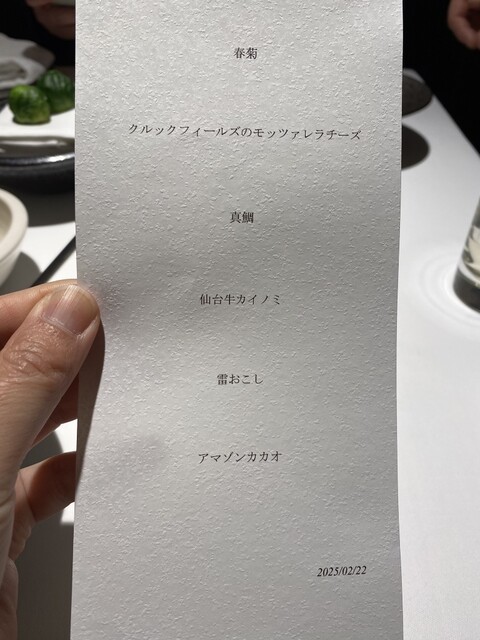 春菊
クルックフィールズのモッツァレラチーズ
真鯛
仙台牛カイノミ
雷おこし
アマゾンカカオ
2025/02/22